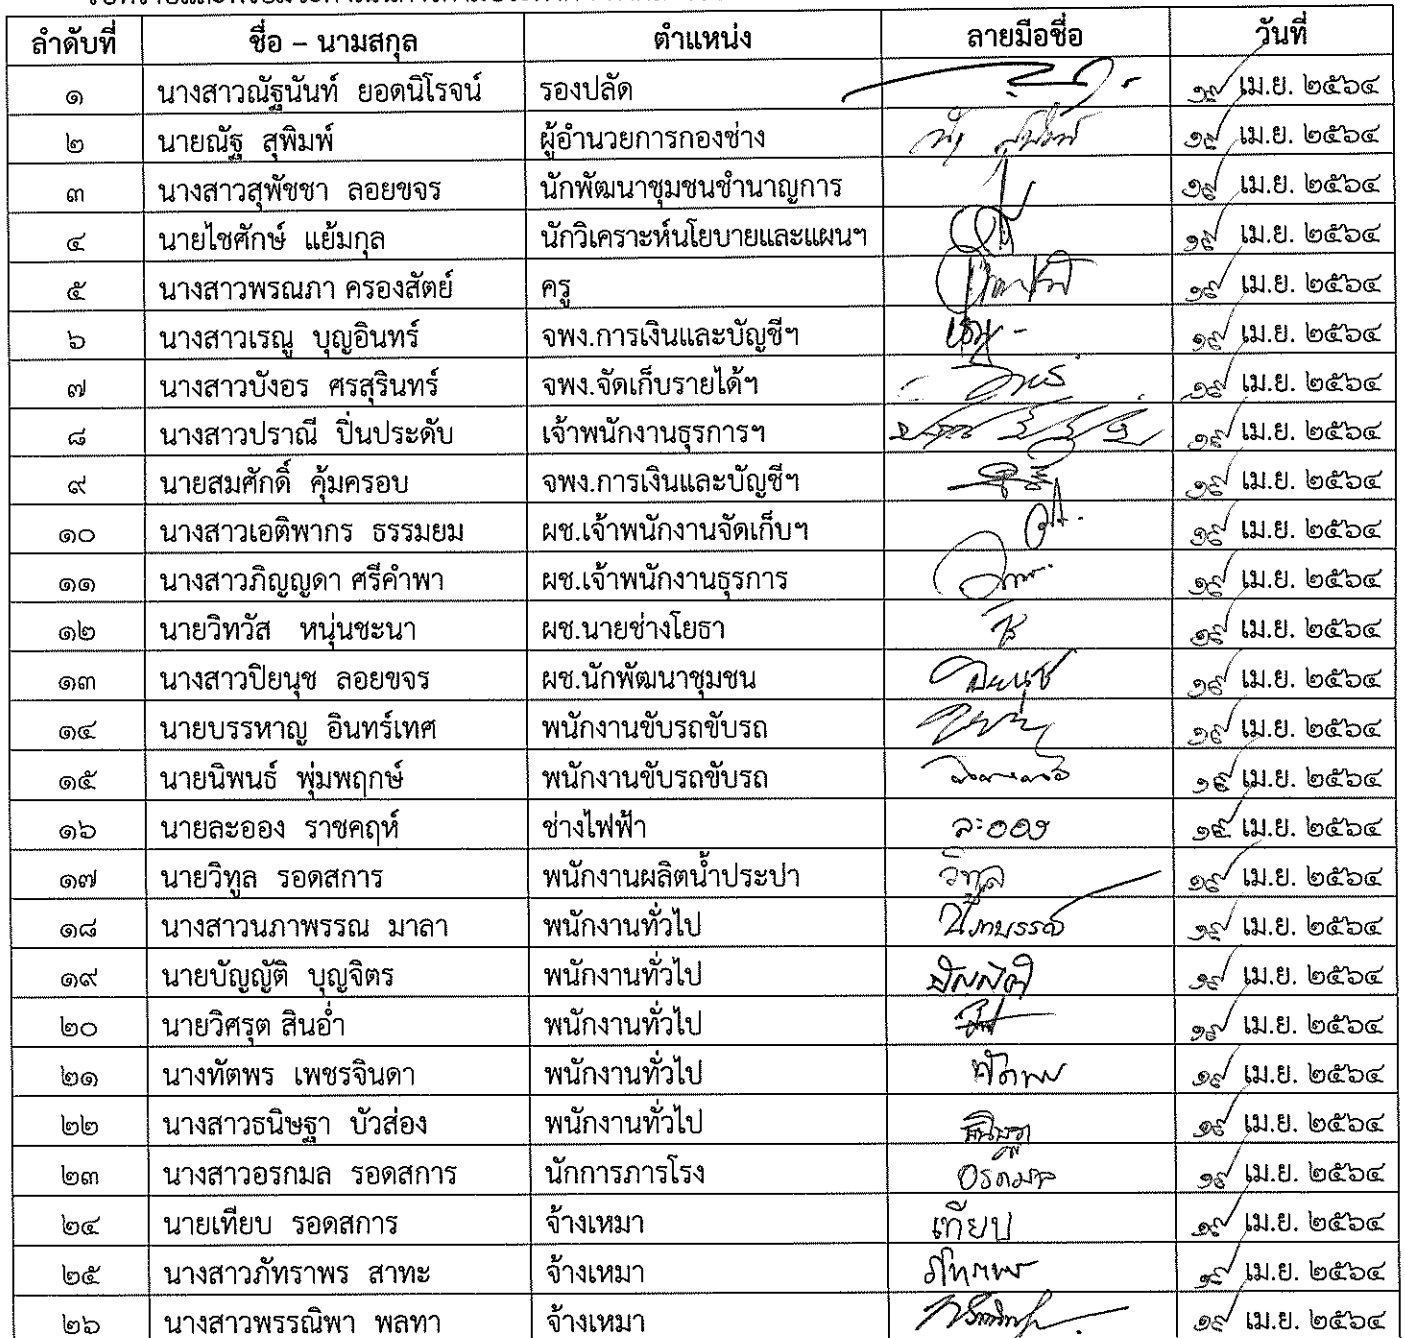 ลำดับที่ ชื่อ – นามสกุล ตำแหน่ง ลายมือชื่อ วันที่
๑ นางสาวณัฐนันท์ ยอดนิโรจน์ รองปลัด เม.ย. ๒๕๖๔
๒ นายณัฐ สุพิมพ์ ผู้อำนวยการกองช่าง เม.ย. ๒๕๖๔
๓ นางสาวสุพัชชา ลอยขจร นักพัฒนาชุมชนชำนาญการ เม.ย. ๒๕๖๔
๔ นายไชศักษ์ แย้มกุล นักวิเคราะห์นโยบายและแผนฯ เม.ย. ๒๕๖๔
๕ นางสาวพรณภา ครองสัตย์ ครู เม.ย. ๒๕๖๔
๖ นางสาวเรณู บุญอินทร์ จพง.การเงินและบัญชีฯ เม.ย. ๒๕๖๔
๗ นางสาวบังอร ศรสุรินทร์ จพง.จัดเก็บรายได้ฯ เม.ย. ๒๕๖๔
๘ นางสาวปราณี ปิ่นประดับ เจ้าพนักงานธุรการฯ เม.ย. ๒๕๖๔
๙ นายสมศักดิ์ คุ้มครอบ จพง.การเงินและบัญชีฯ เม.ย. ๒๕๖๔
๑๐ นางสาวเอติพากร ธรรมยม ผช.เจ้าพนักงานจัดเก็บฯ เม.ย. ๒๕๖๔
๑๑ นางสาวภิญญดา ศรีคำพา ผช.เจ้าพนักงานธุรการ เม.ย. ๒๕๖๔
๑๒ นายวิทวัส หนุ่นชะนา ผช.นายช่างโยธา เม.ย. ๒๕๖๔
๑๓ นางสาวปิยนุช ลอยขจร ผช.นักพัฒนาชุมชน ปิยนุช เม.ย. ๒๕๖๔
๑๔ นายบรรหาญ อินทร์เทศ พนักงานขับรถขับรถ เม.ย. ๒๕๖๔
๑๕ นายนิพนธ์ พุ่มพฤกษ์ พนักงานขับรถขับรถ เม.ย. ๒๕๖๔
๑๖ นายละออง ราชคฤห์ ช่างไฟฟ้า ละออง เม.ย. ๒๕๖๔
๑๗ นายวิทูล รอดสการ พนักงานผลิตน้ำประปา วิทูล เม.ย. ๒๕๖๔
๑๘ นางสาวนภาพรรณ มาลา พนักงานทั่วไป นภาพรรณ เม.ย. ๒๕๖๔
๑๙ นายบัญญัติ บุญจิตร พนักงานทั่วไป บัญญัติ เม.ย. ๒๕๖๔
๒๐ นายวิศรุต สินอ่ำ พนักงานทั่วไป เม.ย. ๒๕๖๔
๒๑ นางทัตพร เพชรจินดา พนักงานทั่วไป ทัตพร เม.ย. ๒๕๖๔
๒๒ นางสาวธนิษฐา บัวส่อง พนักงานทั่วไป ธนิษฐา เม.ย. ๒๕๖๔
๒๓ นางสาวอรกมล รอดสการ นักการภารโรง อรกมล เม.ย. ๒๕๖๔
๒๔ นายเทียบ รอดสการ จ้างเหมา เทียบ เม.ย. ๒๕๖๔
๒๕ นางสาวภัทราพร สาทะ จ้างเหมา เม.ย. ๒๕๖๔
๒๖ นางสาวพรรณิพา พลทา จ้างเหมา เม.ย. ๒๕๖๔